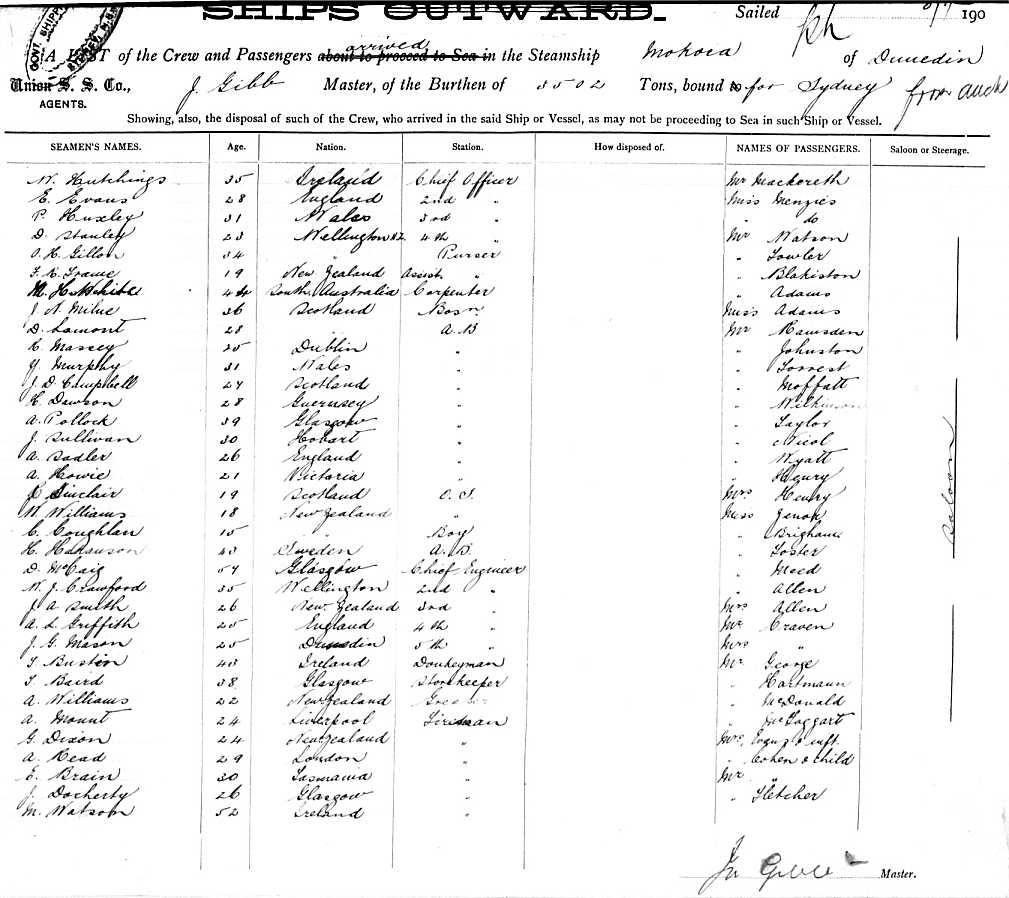 SHIPS OUTWARD.
Sailed 190
A LIST of the Crew and Passengers about to proceed to Sea in the Steamship Mokoia of Dunedin
arrived
Union S. S. Co., J. Gibb Master, of the Burthen of 3502 Tons, bound to for Sydney from Auck
AGENTS.
Showing, also, the disposal of such of the Crew, who arrived in the said Ship or Vessel, as may not be proceeding to Sea in such Ship or Vessel.
SEAMEN'S NAMES. Age. Nation. Station. How disposed of. NAMES OF PASSENGERS. Saloon or Steerage.
W. Hutchings 35 Ireland Chief Officer Mr Mackereth
E. Evans 28 England 2nd " Miss Menzies
P. Huxley 31 Wales 3rd " " do
D. Stanley 23 Wellington N.Z. 4th " Mr Watson
Gillon 34 " Purser " Fowler
19 New Zealand Assist. " " Blakiston
M. H. White South Australia Carpenter " Adams
J. N. Milne 36 Scotland Bosn Miss Adams
D. Lamont 28 " A.B Mr Ramsden
R. Massey 25 Dublin " " Johnston
Murphy 31 Wales " " Forrest
J. D. Campbell 27 Scotland " " Moffatt
H. Dawson 28 Guernsey " " Wilkinson
A. Pollock 39 Glasgow " " Taylor
J. Sullivan 30 Hobart " " Nicol
A. Sadler 26 England " " Wyatt
A. Howie 21 Victoria " " Henry
Sinclair 19 Scotland O.S. Mrs Henry
W. Williams 18 New Zealand " Miss
C. Coughlan 15 " Boy "
H. Hakanson 43 Sweden A.B. " Foster
D. McCaig 57 Glasgow Chief Engineer "
W. J. Crawford 35 Wellington 2nd " " Allen
J. A. Smith 26 New Zealand 3rd " Mrs Allen
A. L. Griffith 25 England 4th " Mr Craven
J. G. Mason 25 Dunedin 5th " Mrs "
T. Bustin 43 Ireland Donkeyman Mr George
T. Baird 38 Glasgow Storekeeper " Hartmann
A. Williams 22 New Zealand Greaser " McDonald
A. Mount 24 Liverpool Fireman " McTaggart
G. Dixon 24 New Zealand " Mrs Evans & inft.
A. Head 29 London " " Cohen & child
E. Brain 30 Tasmania " Mr "
J. Docherty 26 Glasgow " " Fletcher
M. Watson 52 Ireland "
Saloon
Jn Gibb Master.